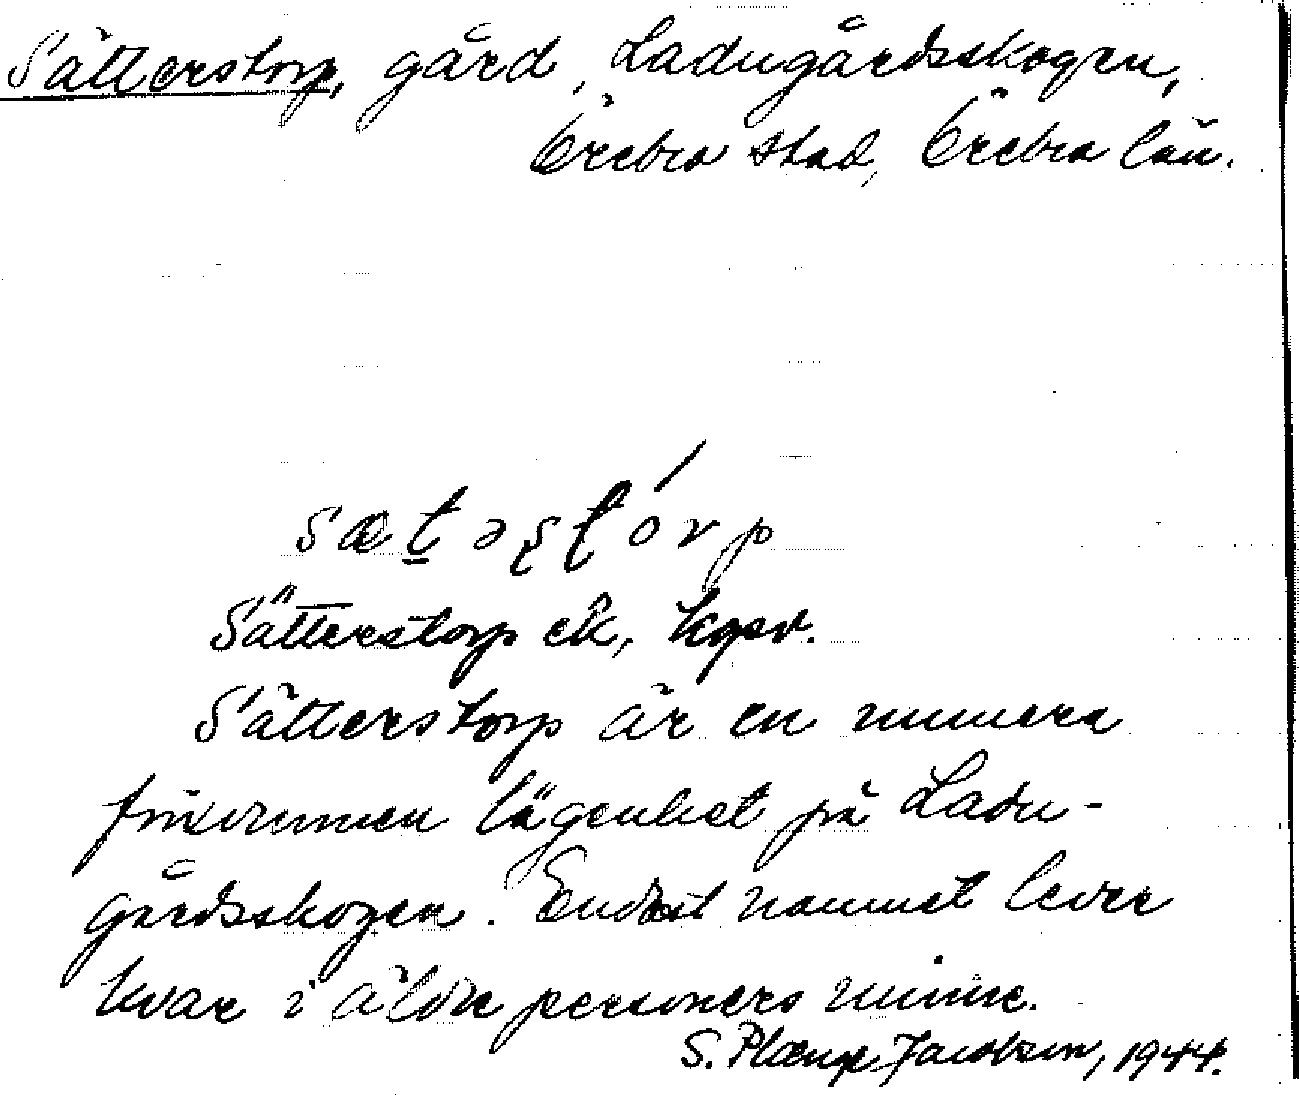 Sätterstorp, gård, Ladugårdsskogen,
Örebro stad, Örebro län.
sæt̲əʂʈórp
Sätterstorp ek, kqsv.
Sätterstorp är en numera
försvunnen lägenhet på Ladu-
gårdsskogen. Endast namnet lever
kvar i äldre personers minne.
S. Plænge Jacobson, 1944.